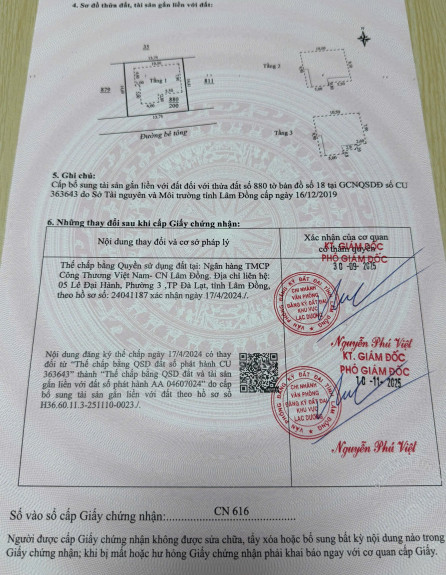 4. Sơ đồ thửa đất, tài sản gắn liền với đất:
33
Tầng 1
879
811
880
200
Đường bê tông
Tầng 2
Tầng 3
5. Ghi chú:
Cấp bổ sung tài sản gắn liền với đất đối với thửa đất số 880 tờ bản đồ số 18 tại GCNQSDĐ số CU
363643 do Sở Tài nguyên và Môi trường tỉnh Lâm Đồng cấp ngày 16/12/2019
6. Những thay đổi sau khi cấp Giấy chứng nhận:
Nội dung thay đổi và cơ sở pháp lý
Xác nhận của cơ quan
có thẩm quyền
KT. GIÁM ĐỐC
PHÓ GIÁM ĐỐC
30 -09- 2025
Thế chấp bằng Quyền sử dụng đất tại: Ngân hàng TMCP
Công Thương Việt Nam- CN Lâm Đồng. Địa chỉ liên hệ:
05 Lê Đại Hành, Phường 3 ,TP Đà Lạt, tỉnh Lâm Đồng,
theo hồ sơ số: 24041187 xác nhận ngày 17/4/2024./.
CHI NHÁNH
VĂN PHÒNG
ĐĂNG KÝ ĐẤT ĐAI
KHU VỰC
LẠC DƯƠNG
Nguyễn Phú Việt
Nội dung đăng ký thế chấp ngày 17/4/2024 có thay
đổi từ "Thế chấp bằng QSD đất số phát hành CU
363643" thành "Thế chấp bằng QSD đất và tài sản
gắn liền với đất số phát hành AA 04607024" do cấp
bổ sung tài sản gắn liền với đất theo hồ sơ số
H36.60.11.3-251110-0023./.
KT. GIÁM ĐỐC
PHÓ GIÁM ĐỐC
10 -11- 2025
CHI NHÁNH
VĂN PHÒNG
ĐĂNG KÝ ĐẤT ĐAI
KHU VỰC
LẠC DƯƠNG
Nguyễn Phú Việt
Số vào sổ cấp Giấy chứng nhận: CN 616
Người được cấp Giấy chứng nhận không được sửa chữa, tẩy xóa hoặc bổ sung bất kỳ nội dung nào trong
Giấy chứng nhận; khi bị mất hoặc hư hỏng Giấy chứng nhận phải khai báo ngay với cơ quan cấp Giấy.